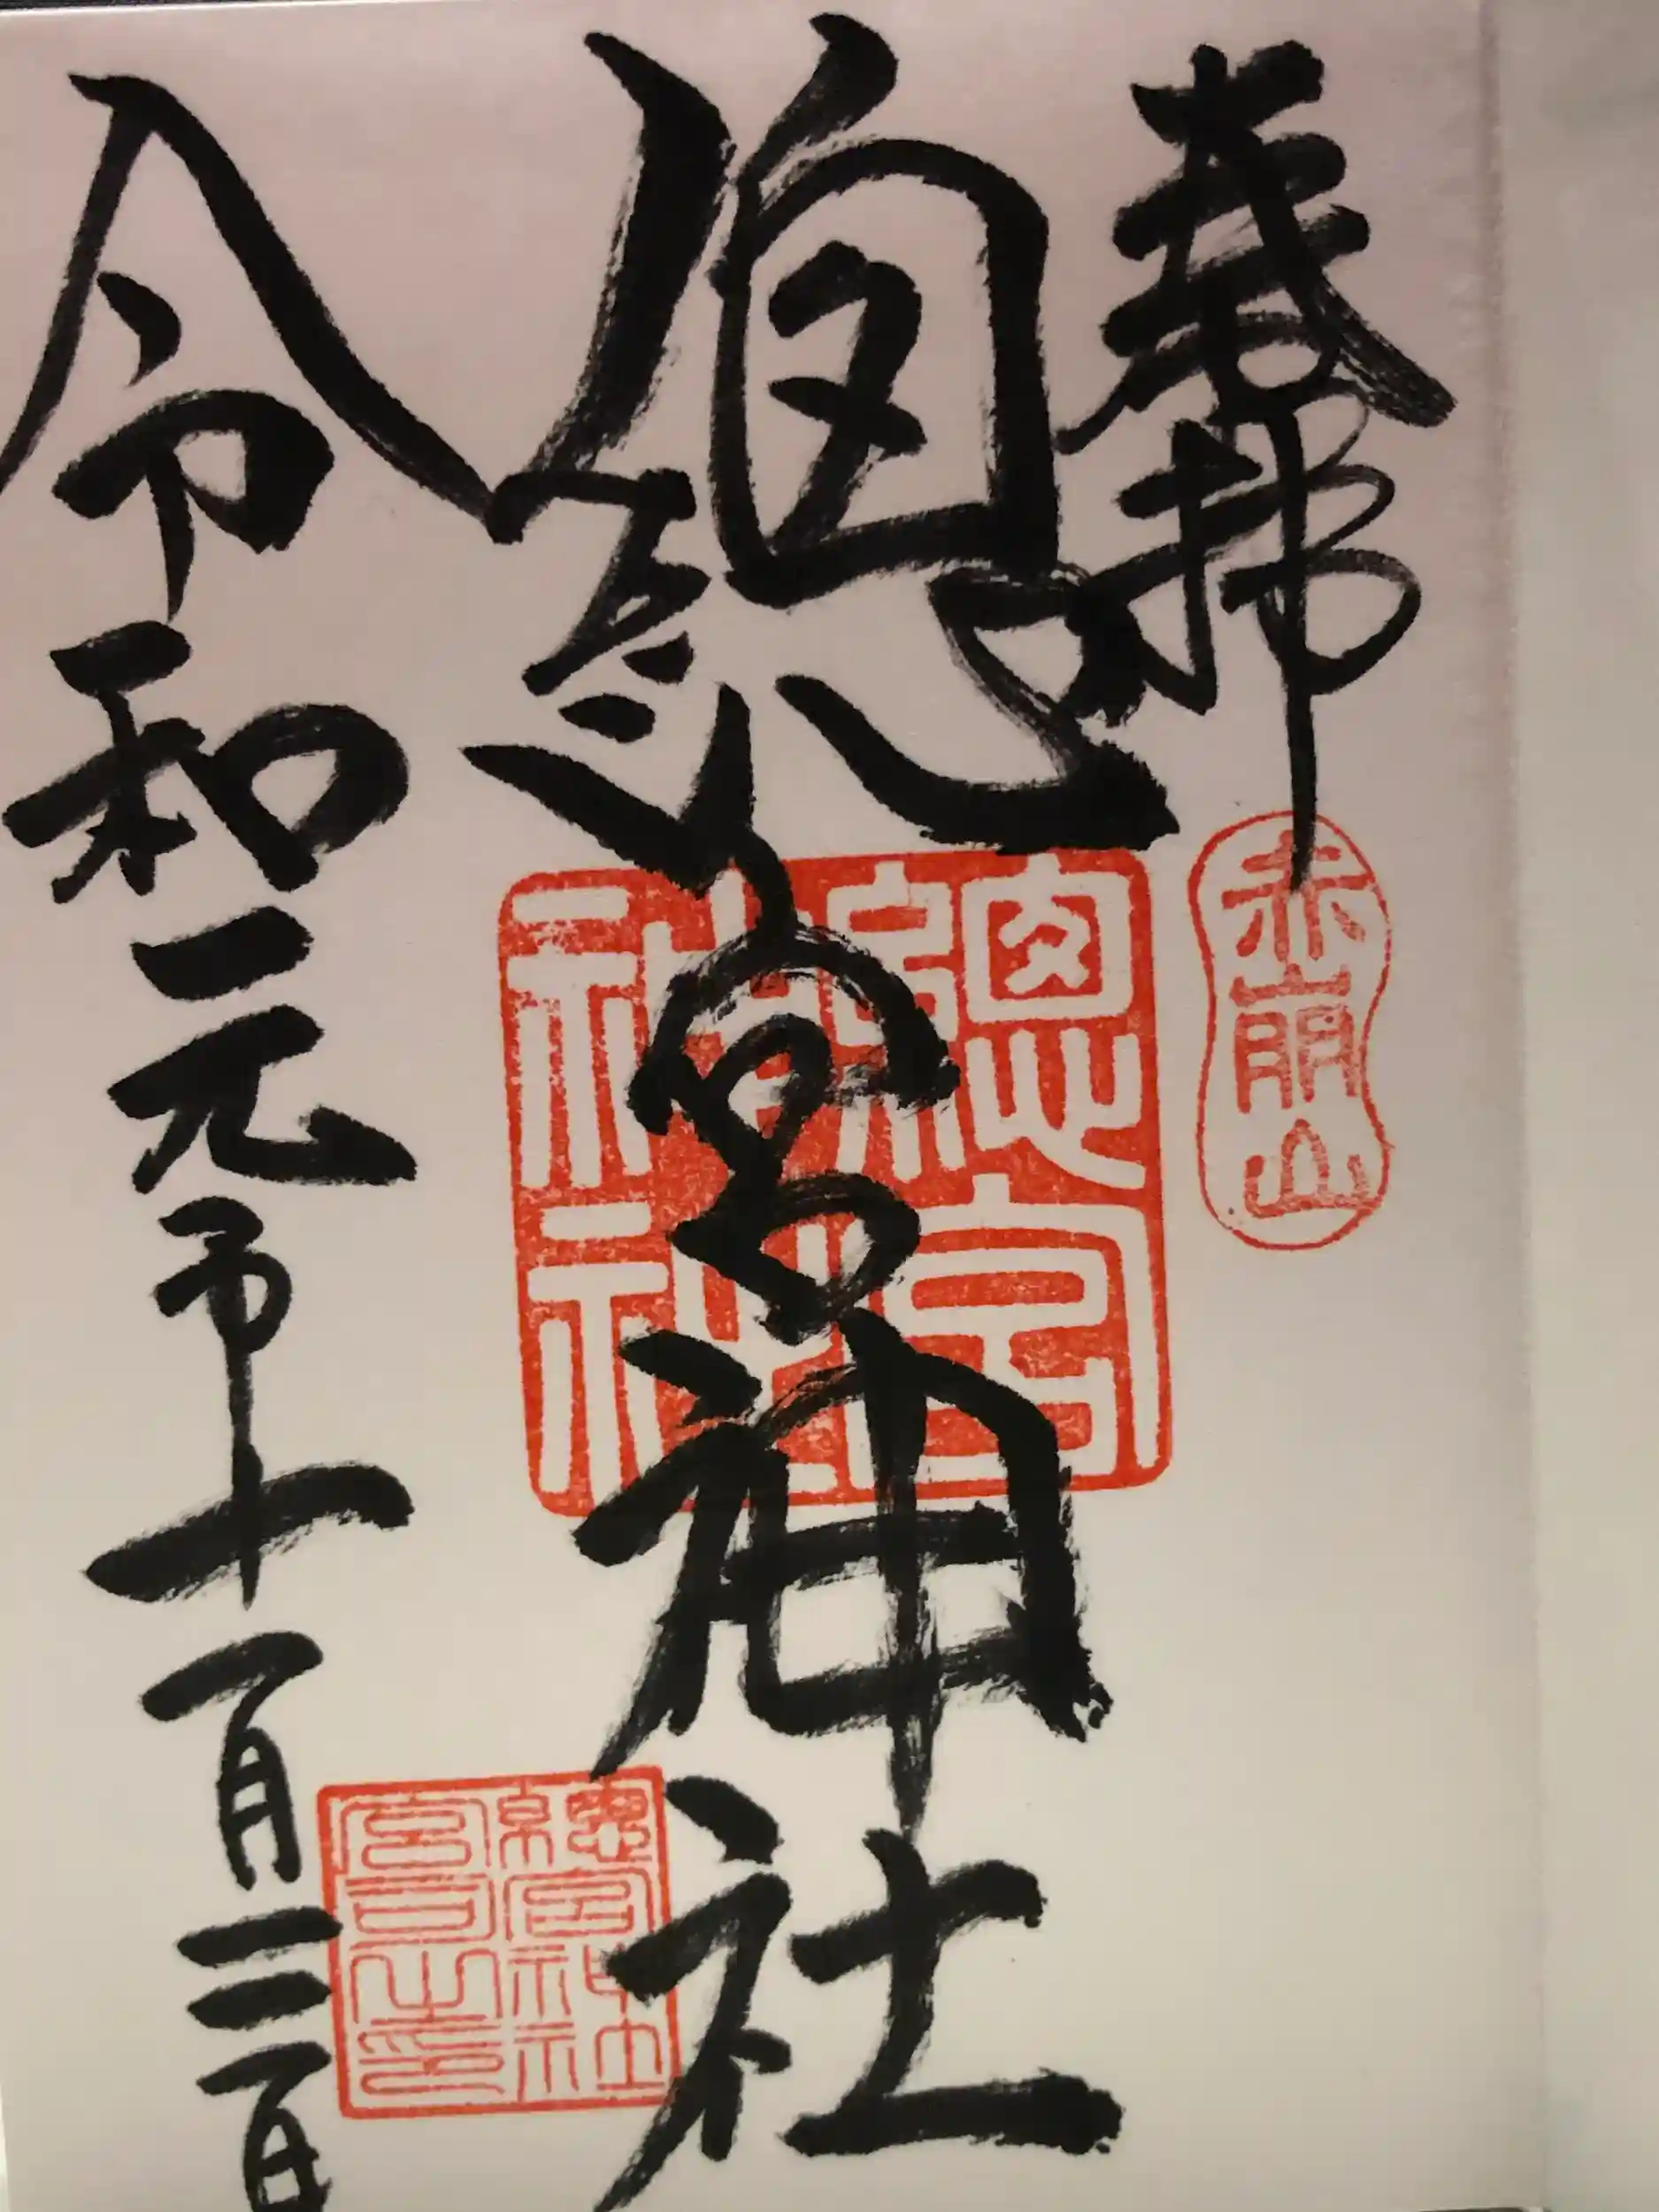 奉拝
赤崩山
總宮神社
總宮
神社
總宮神社
宮司之印
令和元年十一月三日